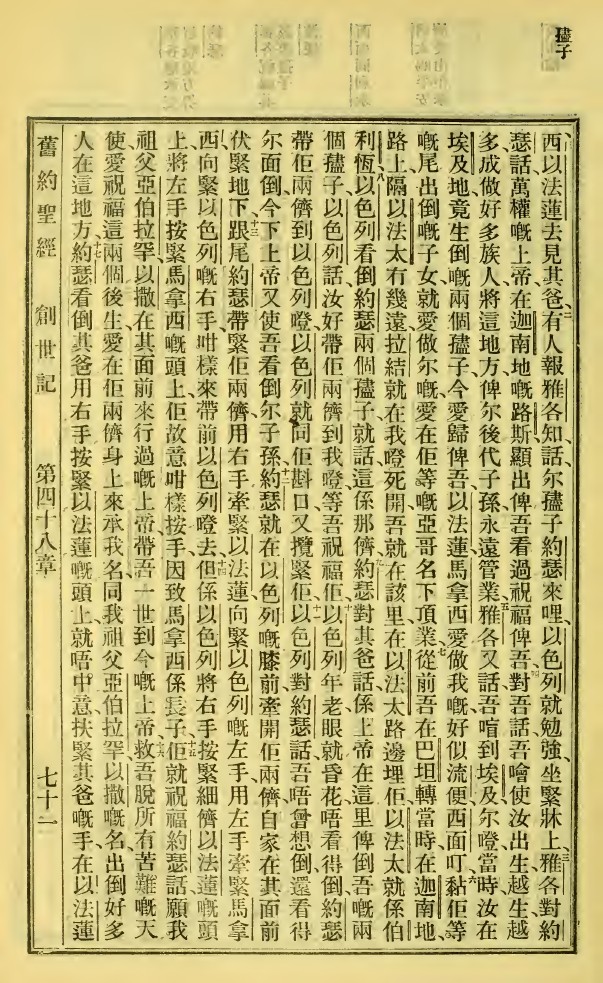 孻子
西以法蓮去見其爸有人報雅各知話尔孻子約瑟來哩以色列就勉強坐緊牀上雅各對約
瑟話萬權嘅上帝在迦南地嘅路斯顯出俾吾看過祝福俾吾對吾話吾噲使汝出生越生越
多成做好多族人將這地方俾尔後代子孫永遠管業雅各又話吾喑到埃及尔噔當時汝在
埃及地竟生倒嘅兩個孻子今愛歸俾吾以法蓮馬拿西愛做我嘅好似流便西面叮黏佢等
嘅尾出倒嘅子女就愛做尔嘅愛在佢等嘅亞哥名下頂業從前吾在巴坦轉當時在迦南地
路上隔以法太冇幾遠拉結就在我噔死開吾就在該里在以法太路邊埋佢以法太就係伯
利恆以色列看倒約瑟兩個孻子就話這係那儕約瑟對其爸話係上帝在這里俾倒吾嘅兩
個孻子以色列話汝好帶佢兩儕到我噔等吾祝福佢以色列年老眼就昏花唔看得倒約瑟
帶佢兩儕到以色列噔以色列就同佢斟口又攬緊佢以色列對約瑟話吾唔曾想倒還看得
尔面倒今下上帝又使吾看倒尔子孫約瑟就在以色列嘅膝前牽開佢兩儕自家在其面前
伏緊地下跟尾約瑟帶緊佢兩儕用右手牽緊以法蓮向緊以色列嘅左手用左手牽緊馬拿
西向緊以色列嘅右手咁樣來帶前以色列噔去但係以色列將右手按緊細儕以法蓮嘅頭
上將左手按緊馬拿西嘅頭上佢故意咁樣按手因致馬拿西係長子佢就祝福約瑟話願我
祖父亞伯拉罕以撒在其面前來行過嘅上帝帶吾一世到今嘅上帝救吾脫所有苦難嘅天
使愛祝福這兩個後生愛在佢兩儕身上來承我名同我祖父亞伯拉罕以撒嘅名出倒好多
人在這地方約瑟看倒其爸用右手按緊以法蓮嘅頭上就唔中意扶緊其爸嘅手在以法蓮
舊約聖經 創世記 第四十八章 七十一